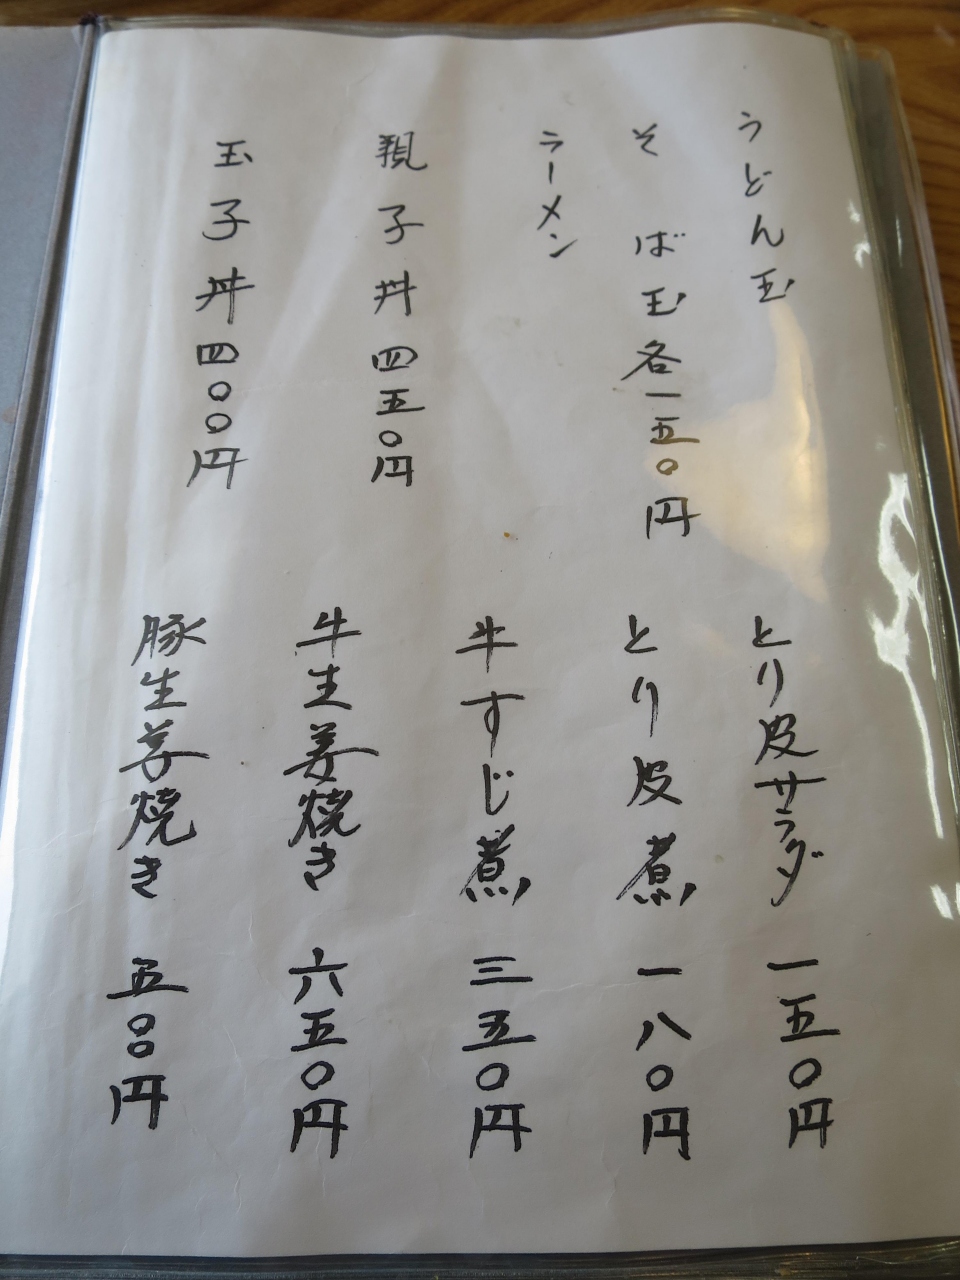 うどん玉
そば玉各一五〇円
ラーメン
親子丼四五〇円
玉子丼四〇〇円
とり皮サラダ 一五〇円
とり皮煮 一八〇円
牛すじ煮 三五〇円
牛生姜焼き 六五〇円
豚生姜焼き 五〇〇円